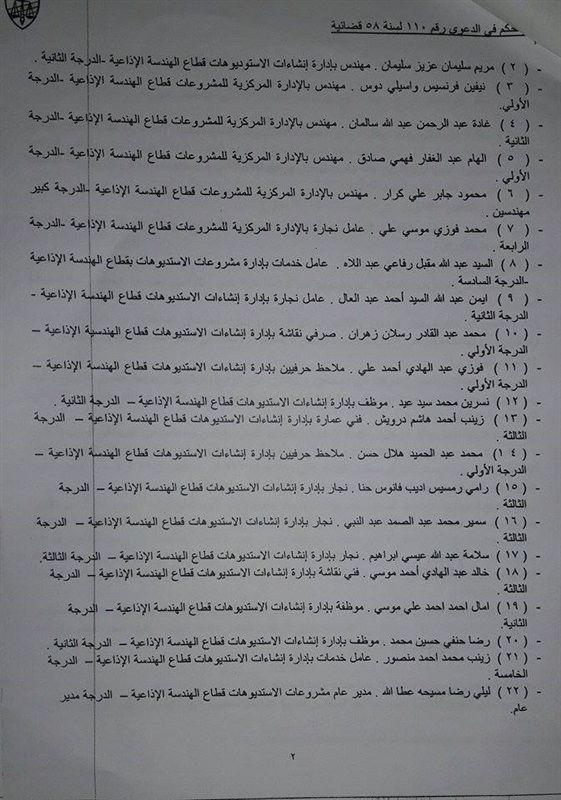 حكم في الدعوى رقم ١١٠ لسنة ٥٨ قضائية
- ( ٢ ) مريم سليمان عزيز سليمان . مهندس بإدارة إنشاءات الاستوديوهات قطاع الهندسة الإذاعية -الدرجة الثانية .
- ( ٣ ) نيفين فرنسيس واسيلي دوس . مهندس بالإدارة المركزية للمشروعات قطاع الهندسة الإذاعية -الدرجة
الأولي.
- ( ٤ ) غادة عبد الرحمن عبد الله سالمان . مهندس بالإدارة المركزية للمشروعات قطاع الهندسة الإذاعية -الدرجة
الثانية .
- ( ٥ ) الهام عبد الغفار فهمي صادق . مهندس بالإدارة المركزية للمشروعات قطاع الهندسة الإذاعية -الدرجة
الأولي .
- ( ٦ ) محمود جابر علي كرار . مهندس بالإدارة المركزية للمشروعات قطاع الهندسة الإذاعية -الدرجة كبير
مهندسين .
- ( ٧ ) محمد فوزي موسي علي . عامل نجارة بالإدارة المركزية للمشروعات قطاع الهندسة الإذاعية -الدرجة
الرابعة .
- ( ٨ ) السيد عبد الله مقبل رفاعي عبد اللاه . عامل خدمات بإدارة مشروعات الاستديوهات بقطاع الهندسة الإذاعية
-الدرجة السادسة .
- ( ٩ ) ايمن عبد الله السيد أحمد عبد العال . عامل نجارة بإدارة إنشاءات الاستديوهات قطاع الهندسة الإذاعية -
الدرجة الثانية .
- ( ١٠ ) محمد عبد القادر رسلان زهران . صرفي نقاشة بإدارة إنشاءات الاستديوهات قطاع الهندسية الإذاعية –
الدرجة الأولي .
- ( ١١ ) فوزي عبد الهادي أحمد علي . ملاحظ حرفيين بإدارة إنشاءات الاستديوهات قطاع الهندسة الإذاعية –
الدرجة الأولي .
- ( ١٢ ) نسرين محمد سيد عيد . موظف بإدارة إنشاءات الاستديوهات قطاع الهندسة الإذاعية – الدرجة الثانية .
- ( ١٣ ) زينب أحمد هاشم درويش . فني عمارة بإدارة إنشاءات الاستديوهات قطاع الهندسة الإذاعية – الدرجة
الثالثة .
- ( ١٤ ) محمد عبد الحميد هلال حسن . ملاحظ حرفيين بإدارة إنشاءات الاستديوهات قطاع الهندسة الإذاعية –
الدرجة الأولي .
- ( ١٥ ) رامي رمسيس اديب فانوس حنا . نجار بإدارة إنشاءات الاستديوهات قطاع الهندسة الإذاعية – الدرجة
الثالثة .
- ( ١٦ ) سمير محمد عبد الصمد عبد النبي . نجار بإدارة إنشاءات الاستديوهات قطاع الهندسة الإذاعية – الدرجة
الثالثة .
- ( ١٧ ) سلامة عبد الله عيسي ابراهيم . نجار بإدارة إنشاءات الاستديوهات قطاع الهندسة الإذاعية – الدرجة الثالثة.
- ( ١٨ ) خالد عبد الهادي أحمد موسي . فني نقاشة بإدارة إنشاءات الاستديوهات قطاع الهندسة الإذاعية – الدرجة
الثالثة .
- ( ١٩ ) امال احمد احمد علي موسي . موظفة بإدارة إنشاءات الاستديوهات قطاع الهندسة الإذاعية – الدرجة
الثانية.
- ( ٢٠ ) رضا حنفي حسين محمد . موظف بإدارة إنشاءات الاستديوهات قطاع الهندسة الإذاعية – الدرجة الثانية .
- ( ٢١ ) زينب محمد احمد منصور . عامل خدمات بإدارة إنشاءات الاستديوهات قطاع الهندسة الإذاعية – الدرجة
الخامسة .
- ( ٢٢ ) ليلي رضا مسيحه عطا الله . مدير عام مشروعات الاستديوهات قطاع الهندسة الإذاعية – الدرجة مدير
عام.
٢